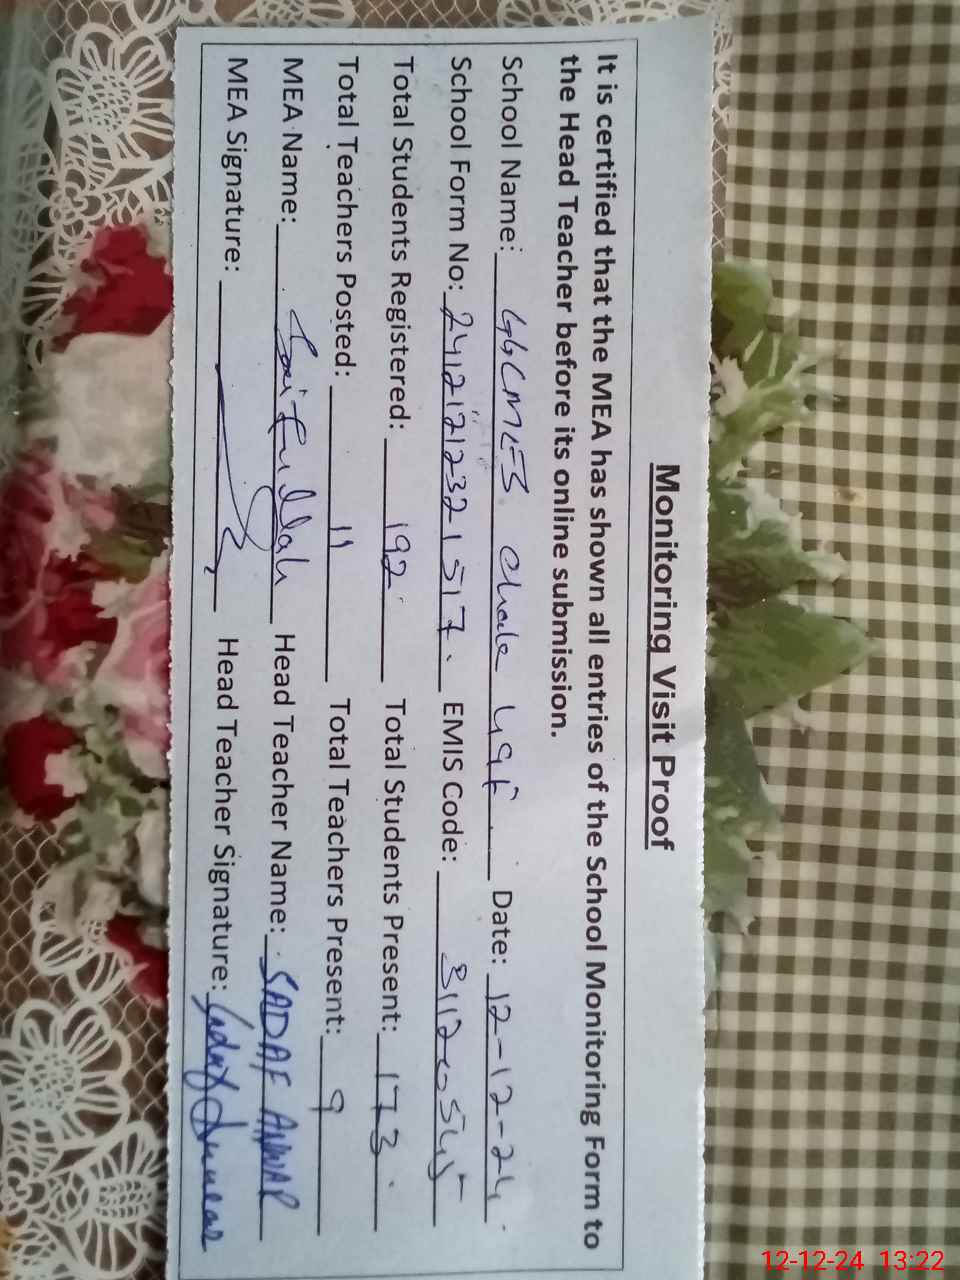 Monitoring Visit Proof
It is certified that the MEA has shown all entries of the School Monitoring Form to
the Head Teacher before its online submission.
School Name: GGCMES Chak 49F. Date: 12-12-24.
School Form No: 2412121232-1517. EMIS Code:
Total Students Registered: 192 Total Students Present: 173.
Total Teachers Posted: 11 Total Teachers Present: 9
MEA Name: Saif Ullah Head Teacher Name: SADAF ANWAR
MEA Signature: Head Teacher Signature: Sadaf Anwar
12-12-24 13:22